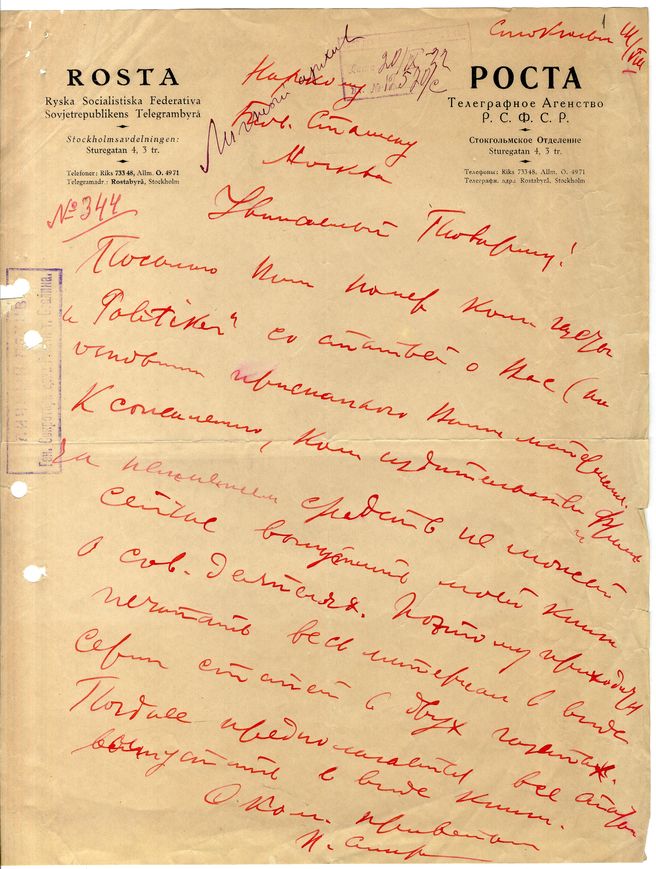 1
Стокгольм 14/VIII
ROSTA
Ryska Socialistiska Federativa
Sovjetrepublikens Telegrambyrå
Stockholmsavdelningen:
Sturegatan 4, 3 tr.
Telefoner: Riks 733 48, Allm. O. 4971
Telegramadr.: Rostabyrå, Stockholm
РОСТА
Телеграфное Агенство
Р. С. Ф. С. Р.
Стокгольмское Отделение
Sturegatan 4, 3 tr.
Телефоны: Riks 733 48, Allm. O. 4971
Телеграфн. адр.: Rostabyrå, Stockholm
Личный архив
20/IX-22
Наркому
Тов. Сталину
Москва
№ 344
Уважаемый Товарищ!
Посылаю Вам номер Ком. газеты
„Politiken" со статьей о Вас (на
основании присланного Вами материала.
К сожалению, Ком. издательство
за неимением средств не может
сейчас выпустить моей книги
о сов. деятелях. Поэтому приходится
печатать весь материал в виде
серии статей в двух газетах.
Позднее предполагается все статьи
выпустить в виде книги.
С Ком. приветом